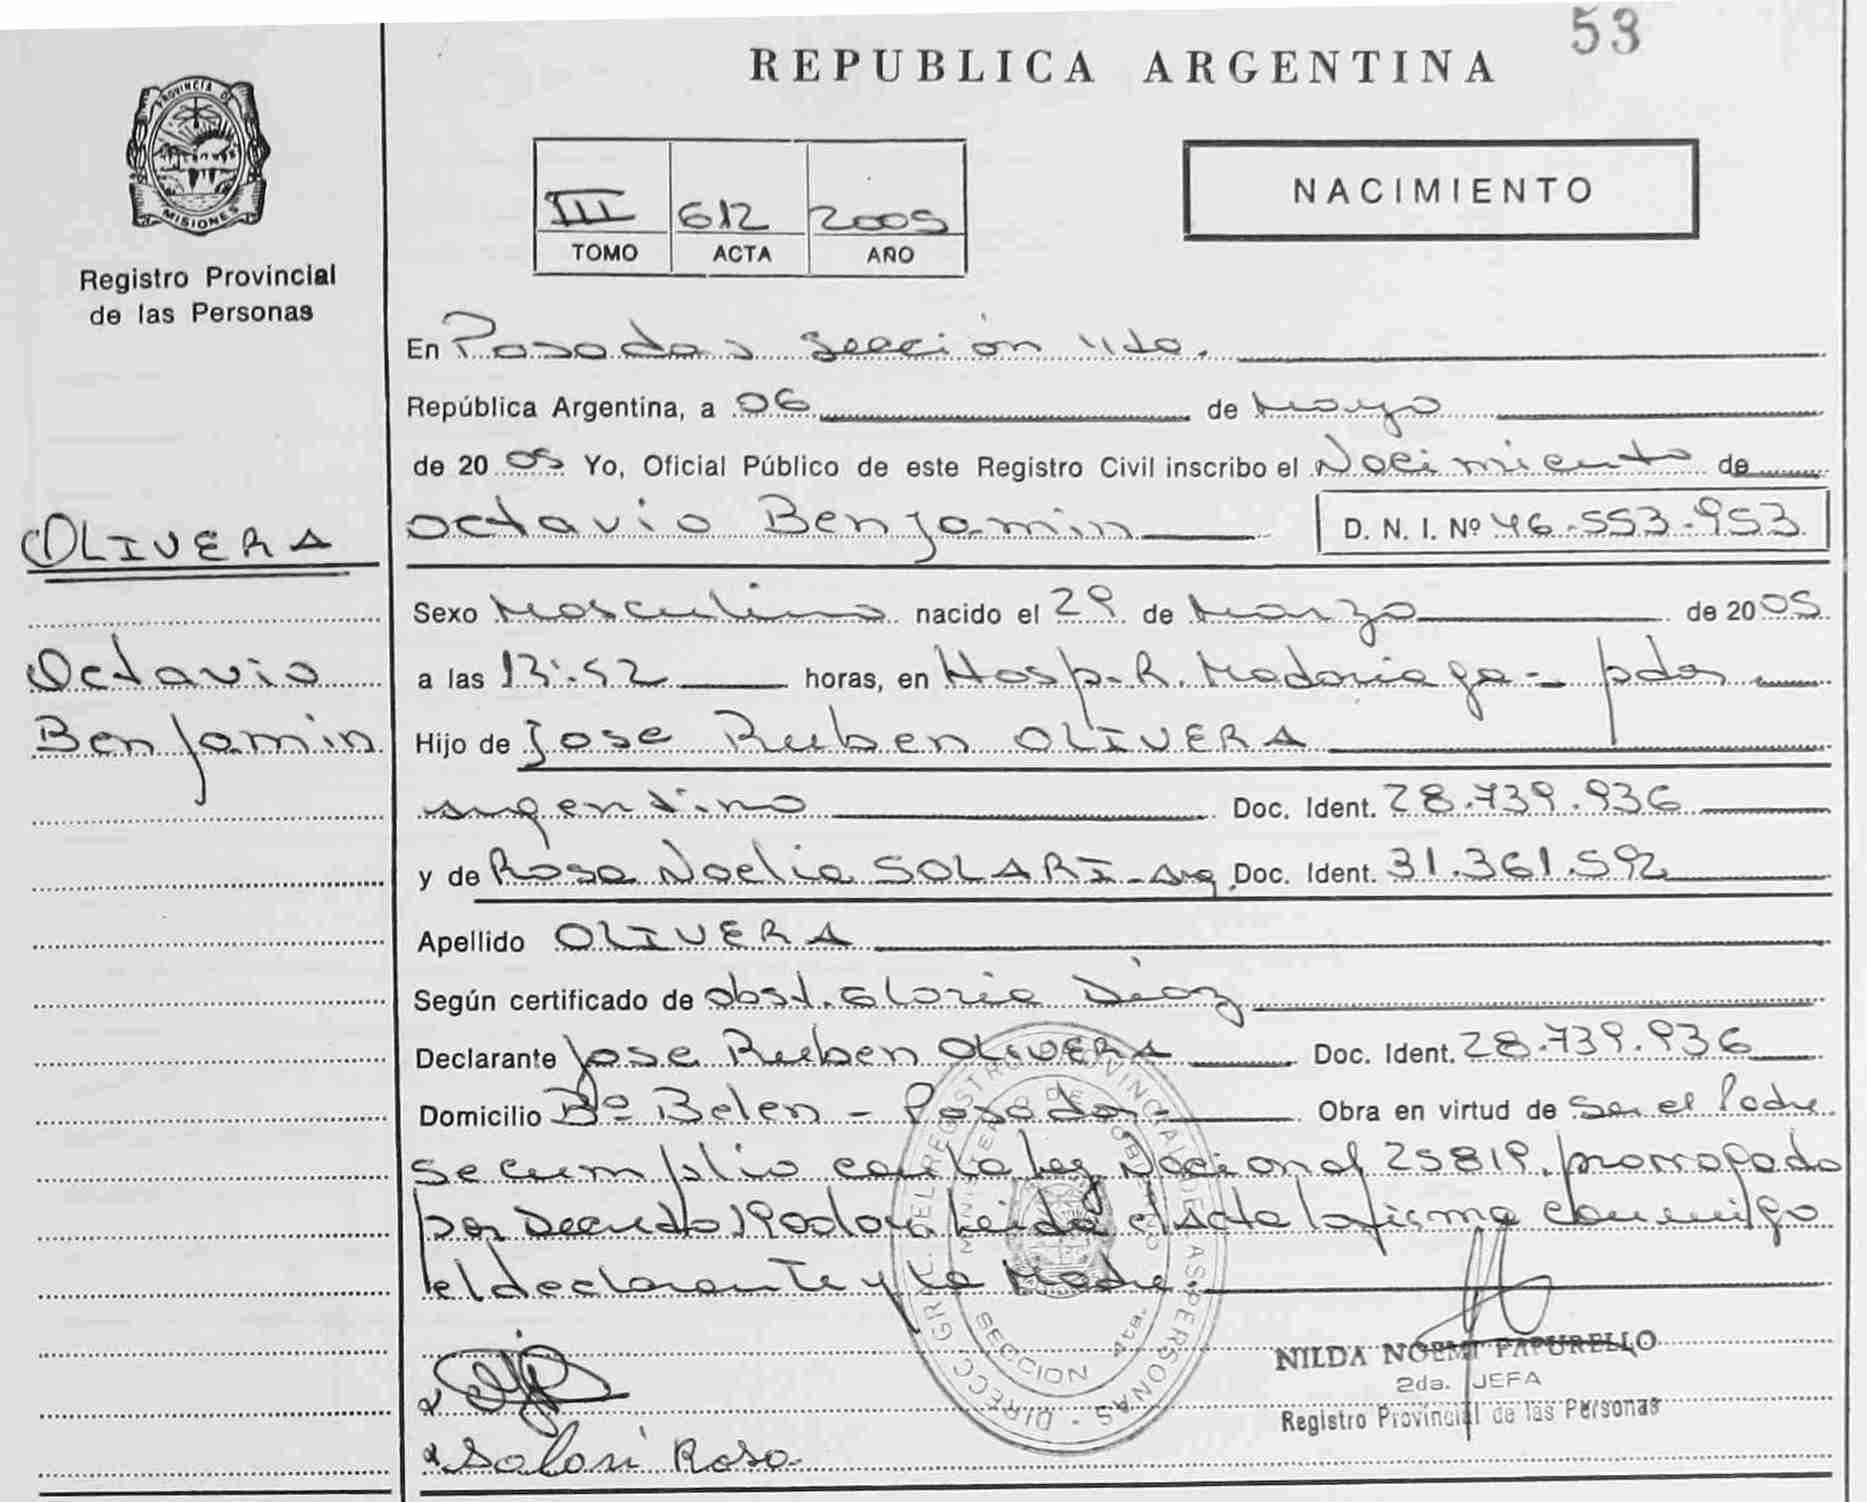 53
REPUBLICA ARGENTINA
PROVINCIA DE
MISIONES
Registro Provincial
de las Personas
NACIMIENTO
III 612 2005
TOMO ACTA AÑO
En Posadas Sección 4ta.
República Argentina, a 06 de Mayo
de 20 05 Yo, Oficial Público de este Registro Civil inscribo el Nacimiento de
OLIVERA
Octavio Benjamin D. N. I. Nº 46.553.953
Sexo Masculino nacido el 29 de Marzo de 20 05
Octavio
Benjamin
a las 13:52 horas, en Hosp. R. Madariaga - pdas
Hijo de Jose Ruben OLIVERA
argentino Doc. Ident. 28.739.936
y de Rosa Noelia SOLARI - arg. Doc. Ident. 31.361.592
Apellido OLIVERA
Según certificado de obst. Gloria Diaz
Declarante Jose Ruben OLIVERA Doc. Ident. 28.739.936
Domicilio Bº Belen - Posadas - Obra en virtud de ser el Padre
se cumplio con la ley Nacional 25819. prorrogado
por Decreto Leida el Acta la firma conmigo
el declarante y la Madre.
DIRECC. GRAL. DEL REGISTRO PROVINCIAL DE LAS PERSONAS
MINISTERIO DE GOBIERNO
SECCION 4ta.
NILDA NOEMI PAPURELLO
2da. JEFA
Registro Provincial de las Personas
Solari Rosa